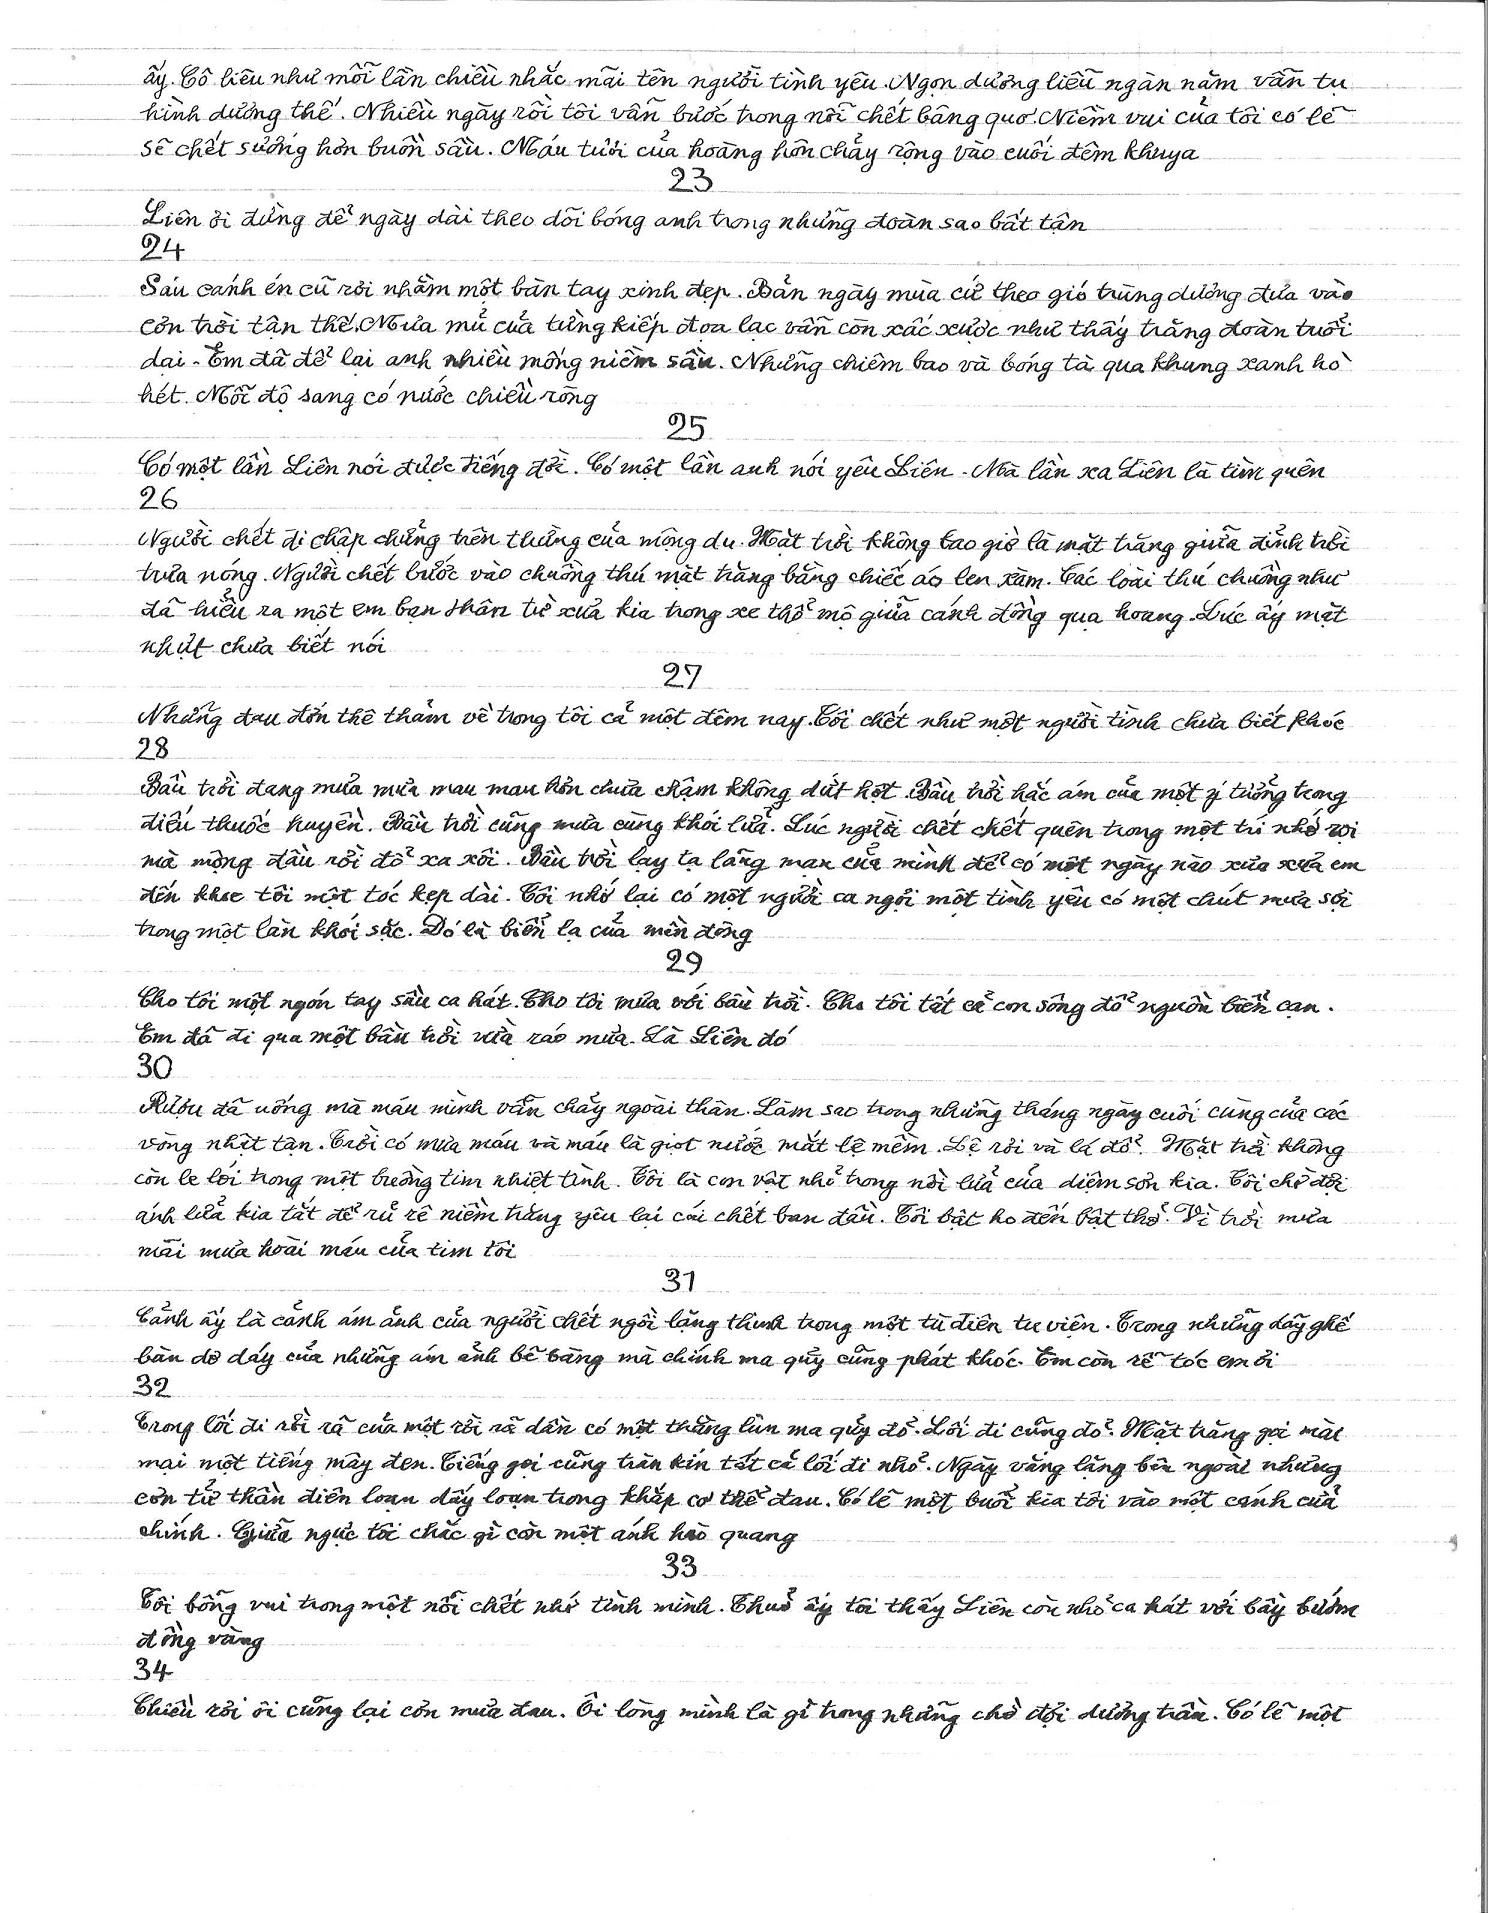 ấy. Cô liêu như mỗi lần chiều nhắc mãi tên người tình yêu. Ngọn dương liễu ngàn năm vẫn tu
hình dương thế. Nhiều ngày rồi tôi vẫn bước trong nỗi chết bâng quơ. Niềm vui của tôi có lẽ
sẽ chết sướng hơn buồn sầu. Máu tươi của hoàng hôn chảy rộng vào cuối đêm khuya
23
Liên ơi đừng để ngày dài theo dõi bóng anh trong những đoàn sao bất tận
24
Sáu cánh én cũ rơi nhằm một bàn tay xinh đẹp. Bản ngày mùa cứ theo gió trùng dương đưa vào
cơn trời tận thế. Mưa mủ của từng kiếp đọa lạc vẫn còn xấc xược như thấy trăng đoàn tuổi
dại. Em đã để lại anh nhiều mống niềm sầu. Những chiêm bao và bóng tà qua khung xanh hò
hét. Mỗi độ sang có nước chiều ròng
25
Có một lần Liên nói được tiếng đời. Có một lần anh nói yêu Liên. Mà lần xa Liên là tìm quên
26
Người chết đi chập chững trên thừng của mộng du. Mặt trời không bao giờ là mặt trăng giữa đỉnh trời
trưa nóng. Người chết bước vào chuồng thú mặt trăng bằng chiếc áo len xàm. Các loài thú chuồng như
đã hiểu ra một em bạn thân từ xưa kia trong xe thổ mộ giữa cánh đồng quạ hoang. Lúc ấy mặt
nhựt chưa biết nói
27
Những đau đớn thê thảm về trong tôi cả một đêm nay. Tôi chết như một người tình chưa biết khóc
28
Bầu trời đang mưa mưa mau mau hơn chưa chậm không dứt hột. Bầu trời hắc ám của một ý tưởng trong
điếu thuốc huyền. Bầu trời cũng mưa cùng khói lửa. Lúc người chết chết quên trong một trí nhớ rọi
mà mộng đầu rồi đổ xa xôi. Bầu trời lạy tạ lãng mạn của mình để có một ngày nào xưa xưa em
đến khoe tôi một tóc kẹp dài. Tôi nhớ lại có một người ca ngợi một tình yêu có một chút mưa sợi
trong một làn khói sặc. Đó là biển lạ của miền đông
29
Cho tôi một ngón tay sầu ca hát. Cho tôi mưa với bầu trời. Cho tôi tất cả con sông đổ nguồn biển cạn.
Em đã đi qua một bầu trời vừa ráo mưa. Là Liên đó
30
Rượu đã uống mà máu mình vẫn chảy ngoài thân. Làm sao trong những tháng ngày cuối cùng của các
vòng nhật tận. Trời có mưa máu và máu là giọt nước mắt lệ mềm. Lệ rơi và lá đổ. Mặt trời không
còn le lói trong một buồng tim nhiệt tình. Tôi là con vật nhỏ trong nồi lửa của diệm sơn kia. Tôi chờ đợi
ánh lửa kia tắt để rủ rê niềm trăng yêu lại cái chết ban đầu. Tôi bật ho đến bật thở. Vì trời mưa
mãi mưa hoài máu của tim tôi
31
Cảnh ấy là cảnh ám ảnh của người chết ngồi lặng thinh trong một từ điên tu viện. Trong những dãy ghế
bàn dơ dáy của những ám ảnh bẽ bàng mà chính ma quỷ cũng phát khóc. Em còn rẽ tóc em ơi
32
Trong lối đi rời rã của một rời rã dần có một thằng lùn ma quỷ đỏ. Lối đi cũng đỏ. Mặt trăng gọi mài
mại một tiếng mây đen. Tiếng gọi cũng tràn kín tất cả lối đi nhỏ. Ngày vắng lặng bên ngoài nhưng
cơn tử thần điên loạn dấy loạn trong khắp cơ thể đau. Có lẽ một buổi kia tôi vào một cánh cửa
chính. Giữa ngực tôi chắc gì còn một ánh hào quang
33
Tôi bỗng vui trong một nỗi chết nhớ tình mình. Thuở ấy tôi thấy Liên còn nhỏ ca hát với bầy bướm
đồng vàng
34
Chiều rơi ôi cũng lại cơn mưa đau. Ôi lòng mình là gì trong những chờ đợi dương trần. Có lẽ một